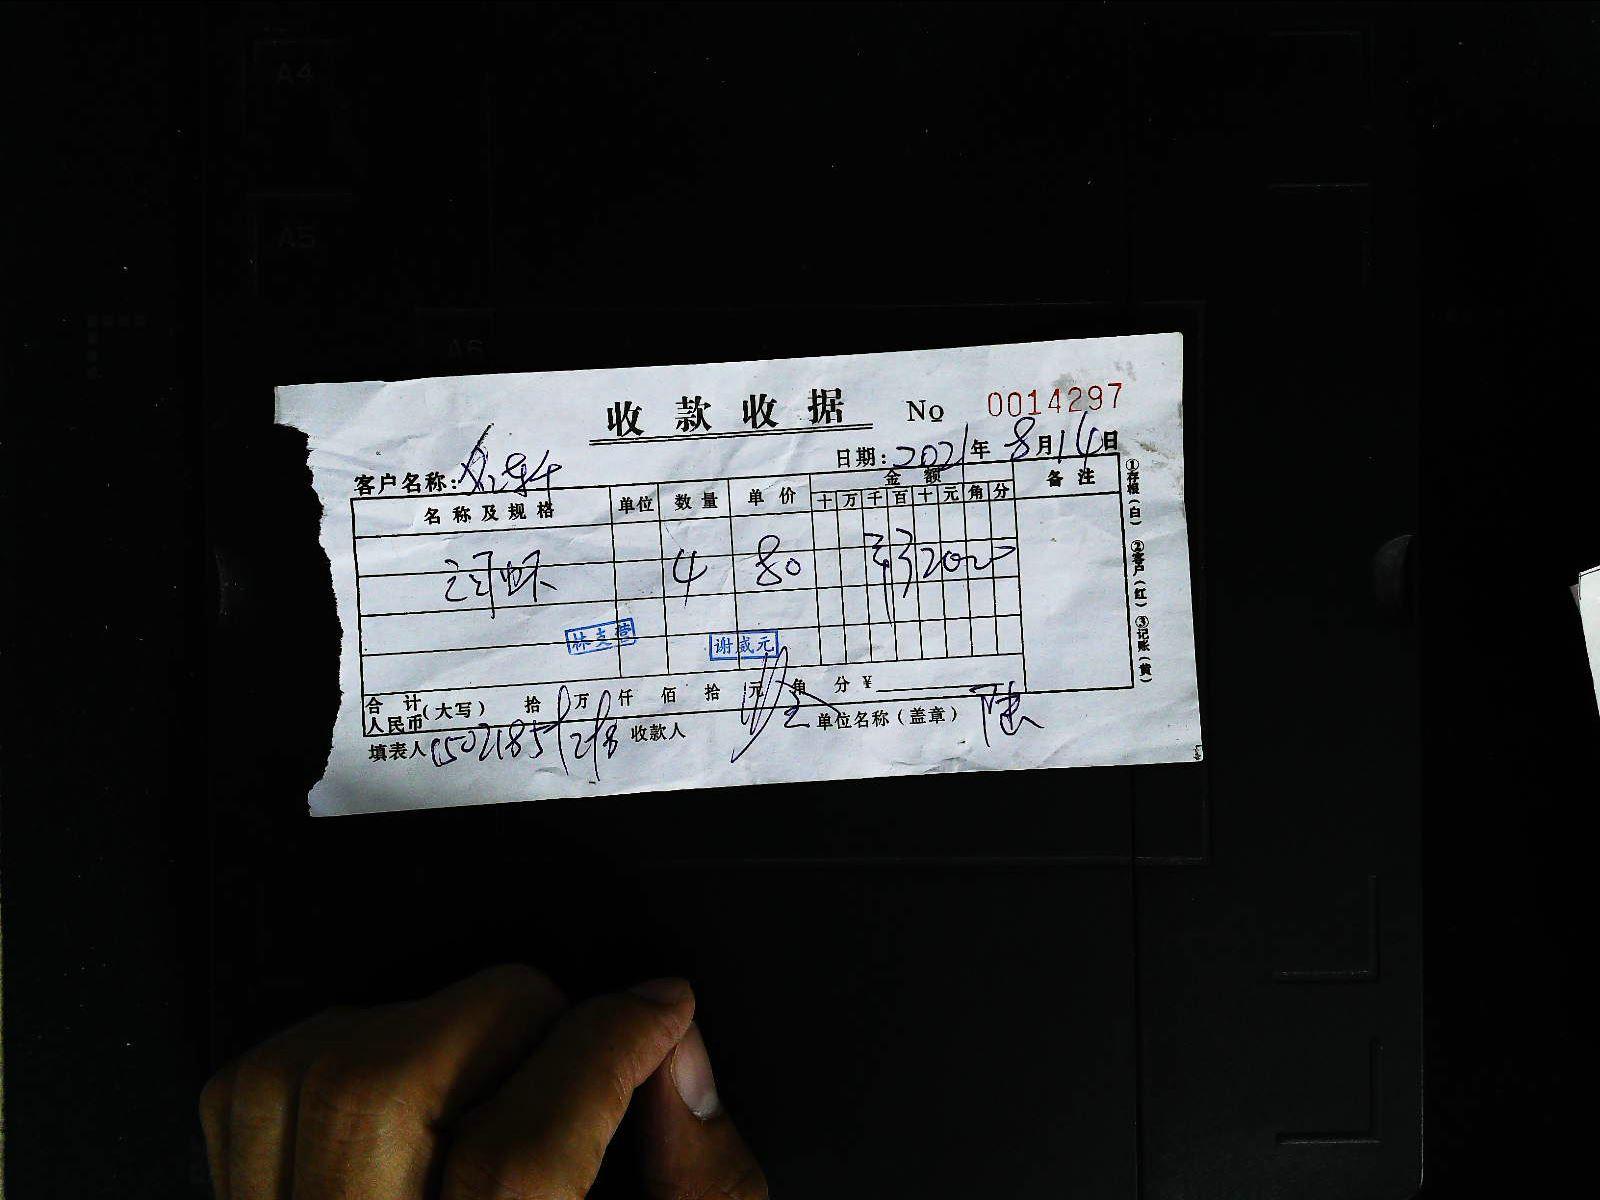 A4
A5
A6
收款收据 No 0014297
日期: 2021年8月14日
客户名称:
名称及规格 单位 数量 单价 金额 备注
十 万 千 百 十 元 角 分
河虾 4 80 320
林克营 谢成元
合计人民币(大写) 拾 万 仟 佰 拾 元 角 分 ¥
填表人 收款人 单位名称(盖章)
①存根(白) ②客户(红) ③记账(黄)